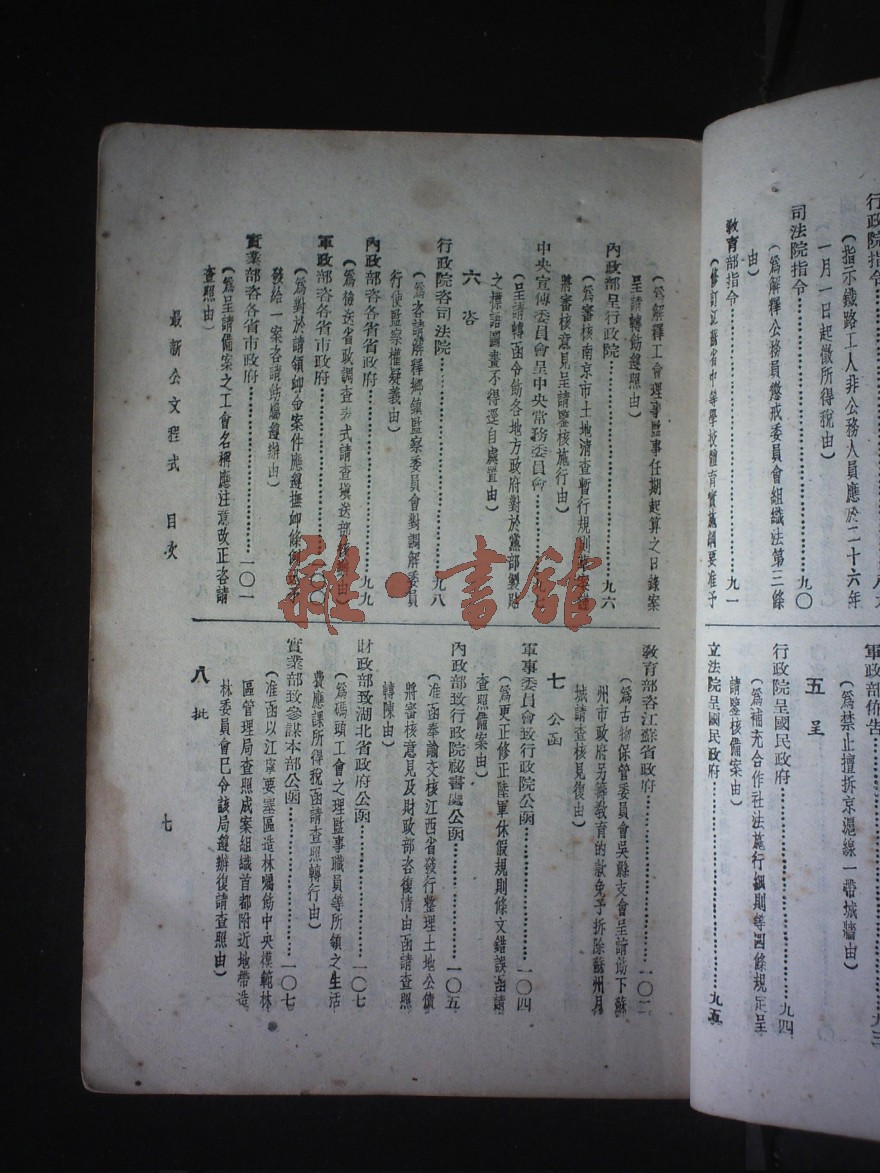 行政院指令
（指示鐵路工人非公務人員應於二十六年
一月一日起徵所得稅由）
司法院指令………九〇
（為解釋公務員懲戒委員會組織法第三條
由）
教育部指令………九一
（修訂江蘇省中等學校體育實施綱要准予
軍政部佈告………九三
（為禁止擅拆京滬線一帶城牆由）
五　呈
行政院呈國民政府………九四
（為補充合作社法施行細則等四條規定呈
請鑒核備案由）
立法院呈國民政府………九五
（為解釋工會理事監事任期起算之日錄案
呈請轉飭遵照由）
內政部呈行政院………九六
（為審核南京市土地清查暫行規則草案
將審核意見呈請鑒核施行由）
中央宣傳委員會呈中央常務委員會………九七
（呈請轉函令飭各地方政府對於黨部製貼
之標語圖畫不得逕自處置由）
六　咨
行政院咨司法院………九八
（為咨請解釋鄉鎮監察委員會對調解委員
行使監察權疑義由）
內政部咨各省省政府………九九
（為檢送省政調查表式請查塡送部由）
軍政部咨各省市政府………一〇〇
（為對於請領卹金案件應遵撫卹條例
發給一案咨請飭屬遵辦由）
實業部咨各省市政府………一〇一
（為呈請備案之工會名稱應注意改正咨請
查照由）
教育部咨江蘇省政府………一〇二
（為古物保管委員會吳縣支會呈請飭下蘇
州市政府另籌教育的款免予拆除蘇州月
城請查核見復由）
七　公函
軍事委員會致行政院公函………一〇四
（為更正修正陸軍休假規則條文錯誤函請
查照備案由）
內政部致行政院祕書處公函………一〇五
（准函奉諭交核江西省發行整理土地公債
將審核意見及財政部咨復情由函請查照
轉陳由）
財政部致湖北省政府公函………一〇七
（為碼頭工會之理監事職員等所領之生活
費應課所得稅函請查照轉行由）
實業部致參謀本部公函………一〇七
（准函以江寧要塞區造林囑飭中央模範林
區管理局查照成案組織首都附近地帶造
林委員會已令該局遵辦復請查照由）
八　批
最新公文程式　目次
七
雜·書館